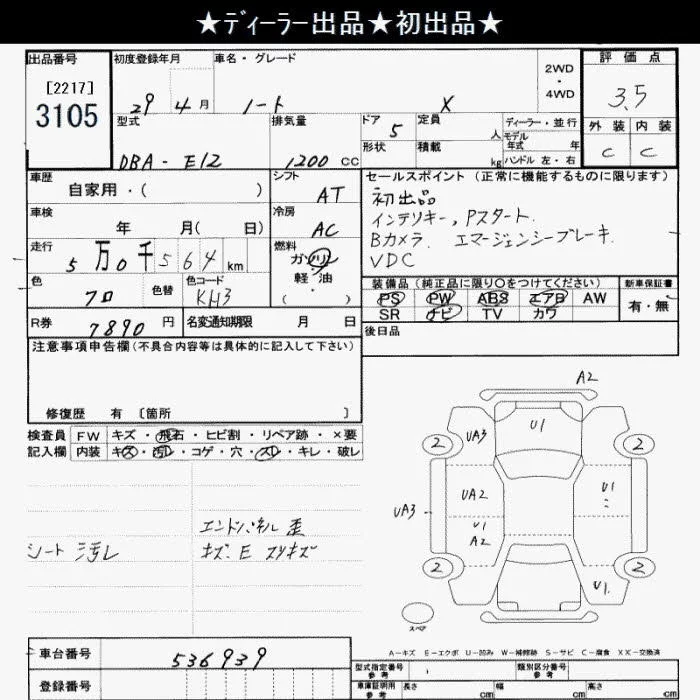 ★ディーラー出品★初出品★
出品番号 初度登録年月 車名・グレード 2WD・4WD 評価点
[2217]
3105
29年4月 ノート X 3.5
型式 排気量 ドア 定員 ディーラー・並行 外装 内装
5 人 モデル年式 年
DBA-E12 1200cc 形状 積載 kg ハンドル 左・右 C C
車歴 シフト セールスポイント(正常に機能するものに限ります)
自家用・( ) AT 初出品
車検 冷房 インテリキー,Pスタート.
年 月( 日) AC Bカメラ. エマージェンシーブレーキ.
走行 燃料 VDC
5万0千564km ガソリン
軽・油
・( )
色 色替 色コード 装備品(純正品に限り○をつけてください) 新車保証書
クロ KH3 PS PW ABS エアB AW 有・無
SR ナビ TV カワ
R券 7890円 名変通知期限 月 日 後日品
注意事項申告欄(不具合内容等は具体的に記入して下さい)
修復歴 有 〔箇所 〕
検査員 FW キズ・飛石・ヒビ割・リペア跡・×要
記入欄 内装 キズ・汚レ・コゲ・穴・スレ・キレ・破レ
シート 汚レ
エンドパネル 歪
キズ.E スリキズ
A2
U1
UA3
2 2
UA2
U1
ミ
UA3
U1
A2
2 2
U1.
スペア
A-キズ E-エクボ U-凹み W-補修跡 S-サビ C-腐食 XX-交換済
車台番号 536939
登録番号
型式指定番号 参考 類別区分番号 参考
車庫証明用 参考 長さ cm 幅 cm 高さ cm